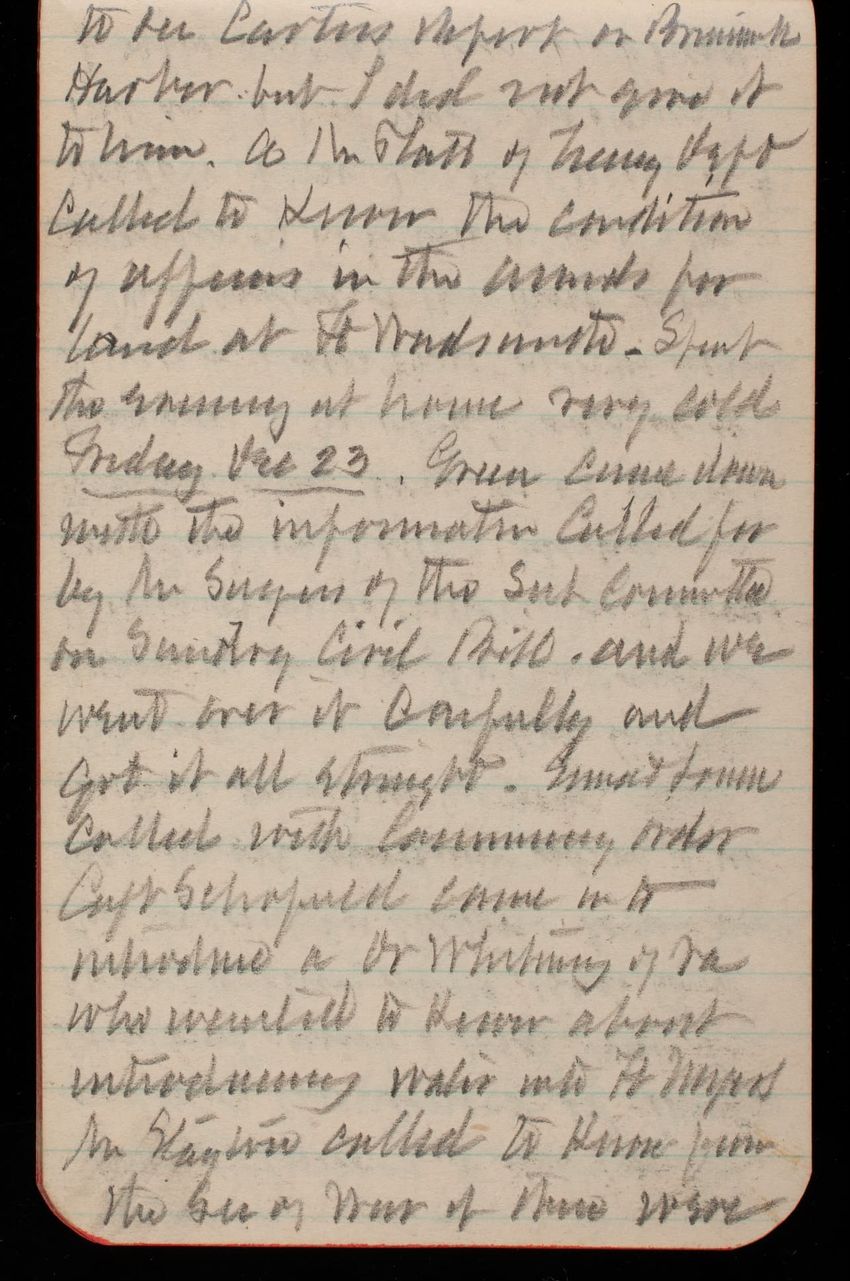 to see Carters report on Brunswick
Harbor but I did not give it
to him. A Mr Platt of Treasy Dept
Called to Know the condition
of affairs in the awards for
land at Ft Wadsworth - Spent
the evening at home very cold
Friday Dec 23. Green came down
with the information Called for
by Mr Sayers of the Sub Committee
on Sundry Civil Bill. and we
went over it Carefully and
got it all straight.
called with Casemmey order
Capt Schofield came in to
introduce a Dr Whiting of Va
who wanted to Know about
introducing water into Ft Myers
Mr called to Know from
the Sec of War if there were